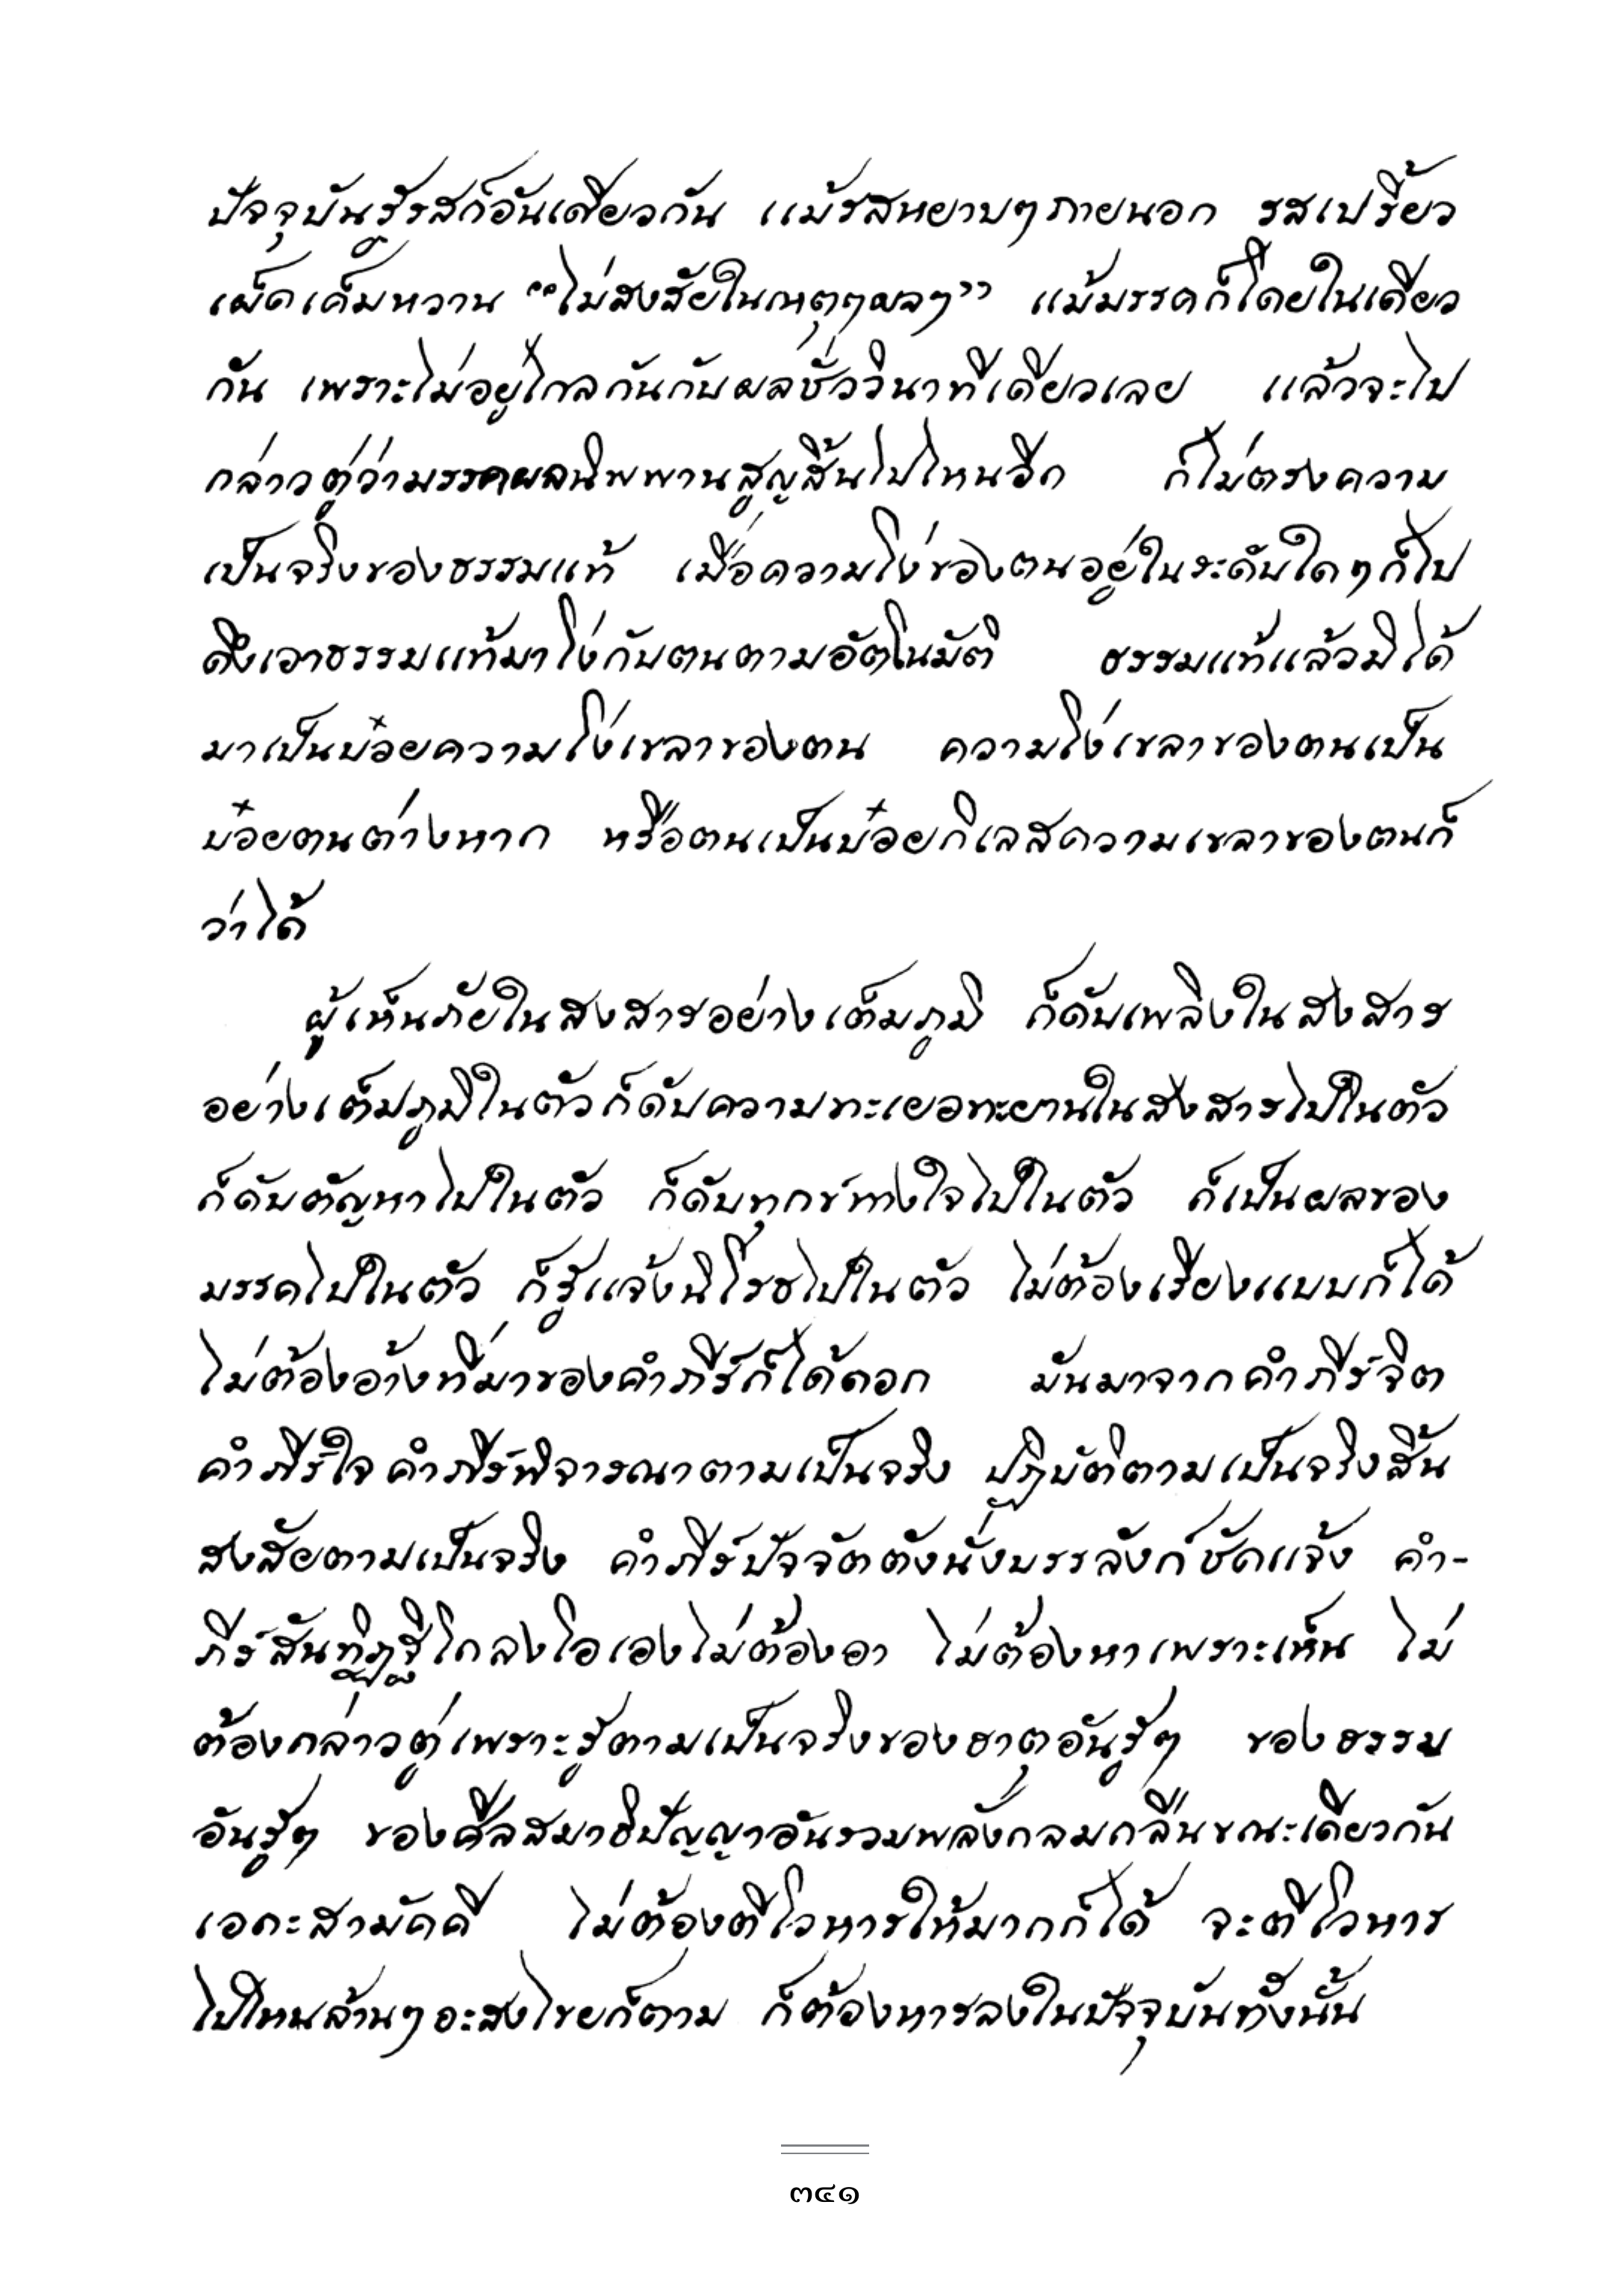 ปัจจุบันรู้รสก็อันเดียวกัน แม้รสหยาบๆภายนอก รสเปรี้ยว
เผ็ดเค็มหวาน “ไม่สงสัยในเหตุๆผลๆ” แม้มรรคก็โดยในเดียว
กัน เพราะไม่อยู่ไกลกันกับผลชั่ววินาทีเดียวเลย แล้วจะไป
กล่าวตู่ว่ามรรคผลนิพพานสูญสิ้นไปไหนอีก ก็ไม่ตรงความ
เป็นจริงของธรรมแท้ เมื่อความโง่ของตนอยู่ในระดับใดๆก็ไป
ดึงเอาธรรมแท้มาโง่กับตนตามอัตโนมัติ ธรรมแท้แล้วมิได้
มาเป็นบ๋อยความโง่เขลาของตน ความโง่เขลาของตนเป็น
บ๋อยตนต่างหาก หรือตนเป็นบ๋อยกิเลสความเขลาของตนก็
ว่าได้
ผู้เห็นภัยในสงสารอย่างเต็มภูมิ ก็ดับเพลิงในสงสาร
อย่างเต็มภูมิในตัวก็ดับความทะเยอทะยานในสงสารไปในตัว
ก็ดับตัญหาไปในตัว ก็ดับทุกข์ทางใจไปในตัว ก็เป็นผลของ
มรรคไปในตัว ก็รู้แจ้งนิโรธไปในตัว ไม่ต้องเรียงแบบก็ได้
ไม่ต้องอ้างที่มาของคำภีร์ก็ได้ดอก มันมาจากคำภีร์จิต
คำภีร์ใจ คำภีร์พิจารณาตามเป็นจริง ปฏิบัติตามเป็นจริงสิ้น
สงสัยตามเป็นจริง คำภีร์ปัจจัตตังนั่งบรรลังก์ชัดแจ้ง คำ-
ภีร์สันทิฏฐิโกลงโอเองไม่ต้องอา ไม่ต้องหาเพราะเห็น ไม่
ต้องกล่าวตู่เพราะรู้ตามเป็นจริงของธาตุอันรู้ๆ ของธรรม
อันรู้ๆ ของศีลสมาธิปัญญาอันรวมพลังกลมกลืนขณะเดียวกัน
เอกะสามัคคี ไม่ต้องตีโวหารให้มากก็ได้ จะตีโวหาร
ไปไหนล้านๆอะสงไขยก็ตาม ก็ต้องหารลงในปัจจุบันทั้งนั้น
๓๔๑